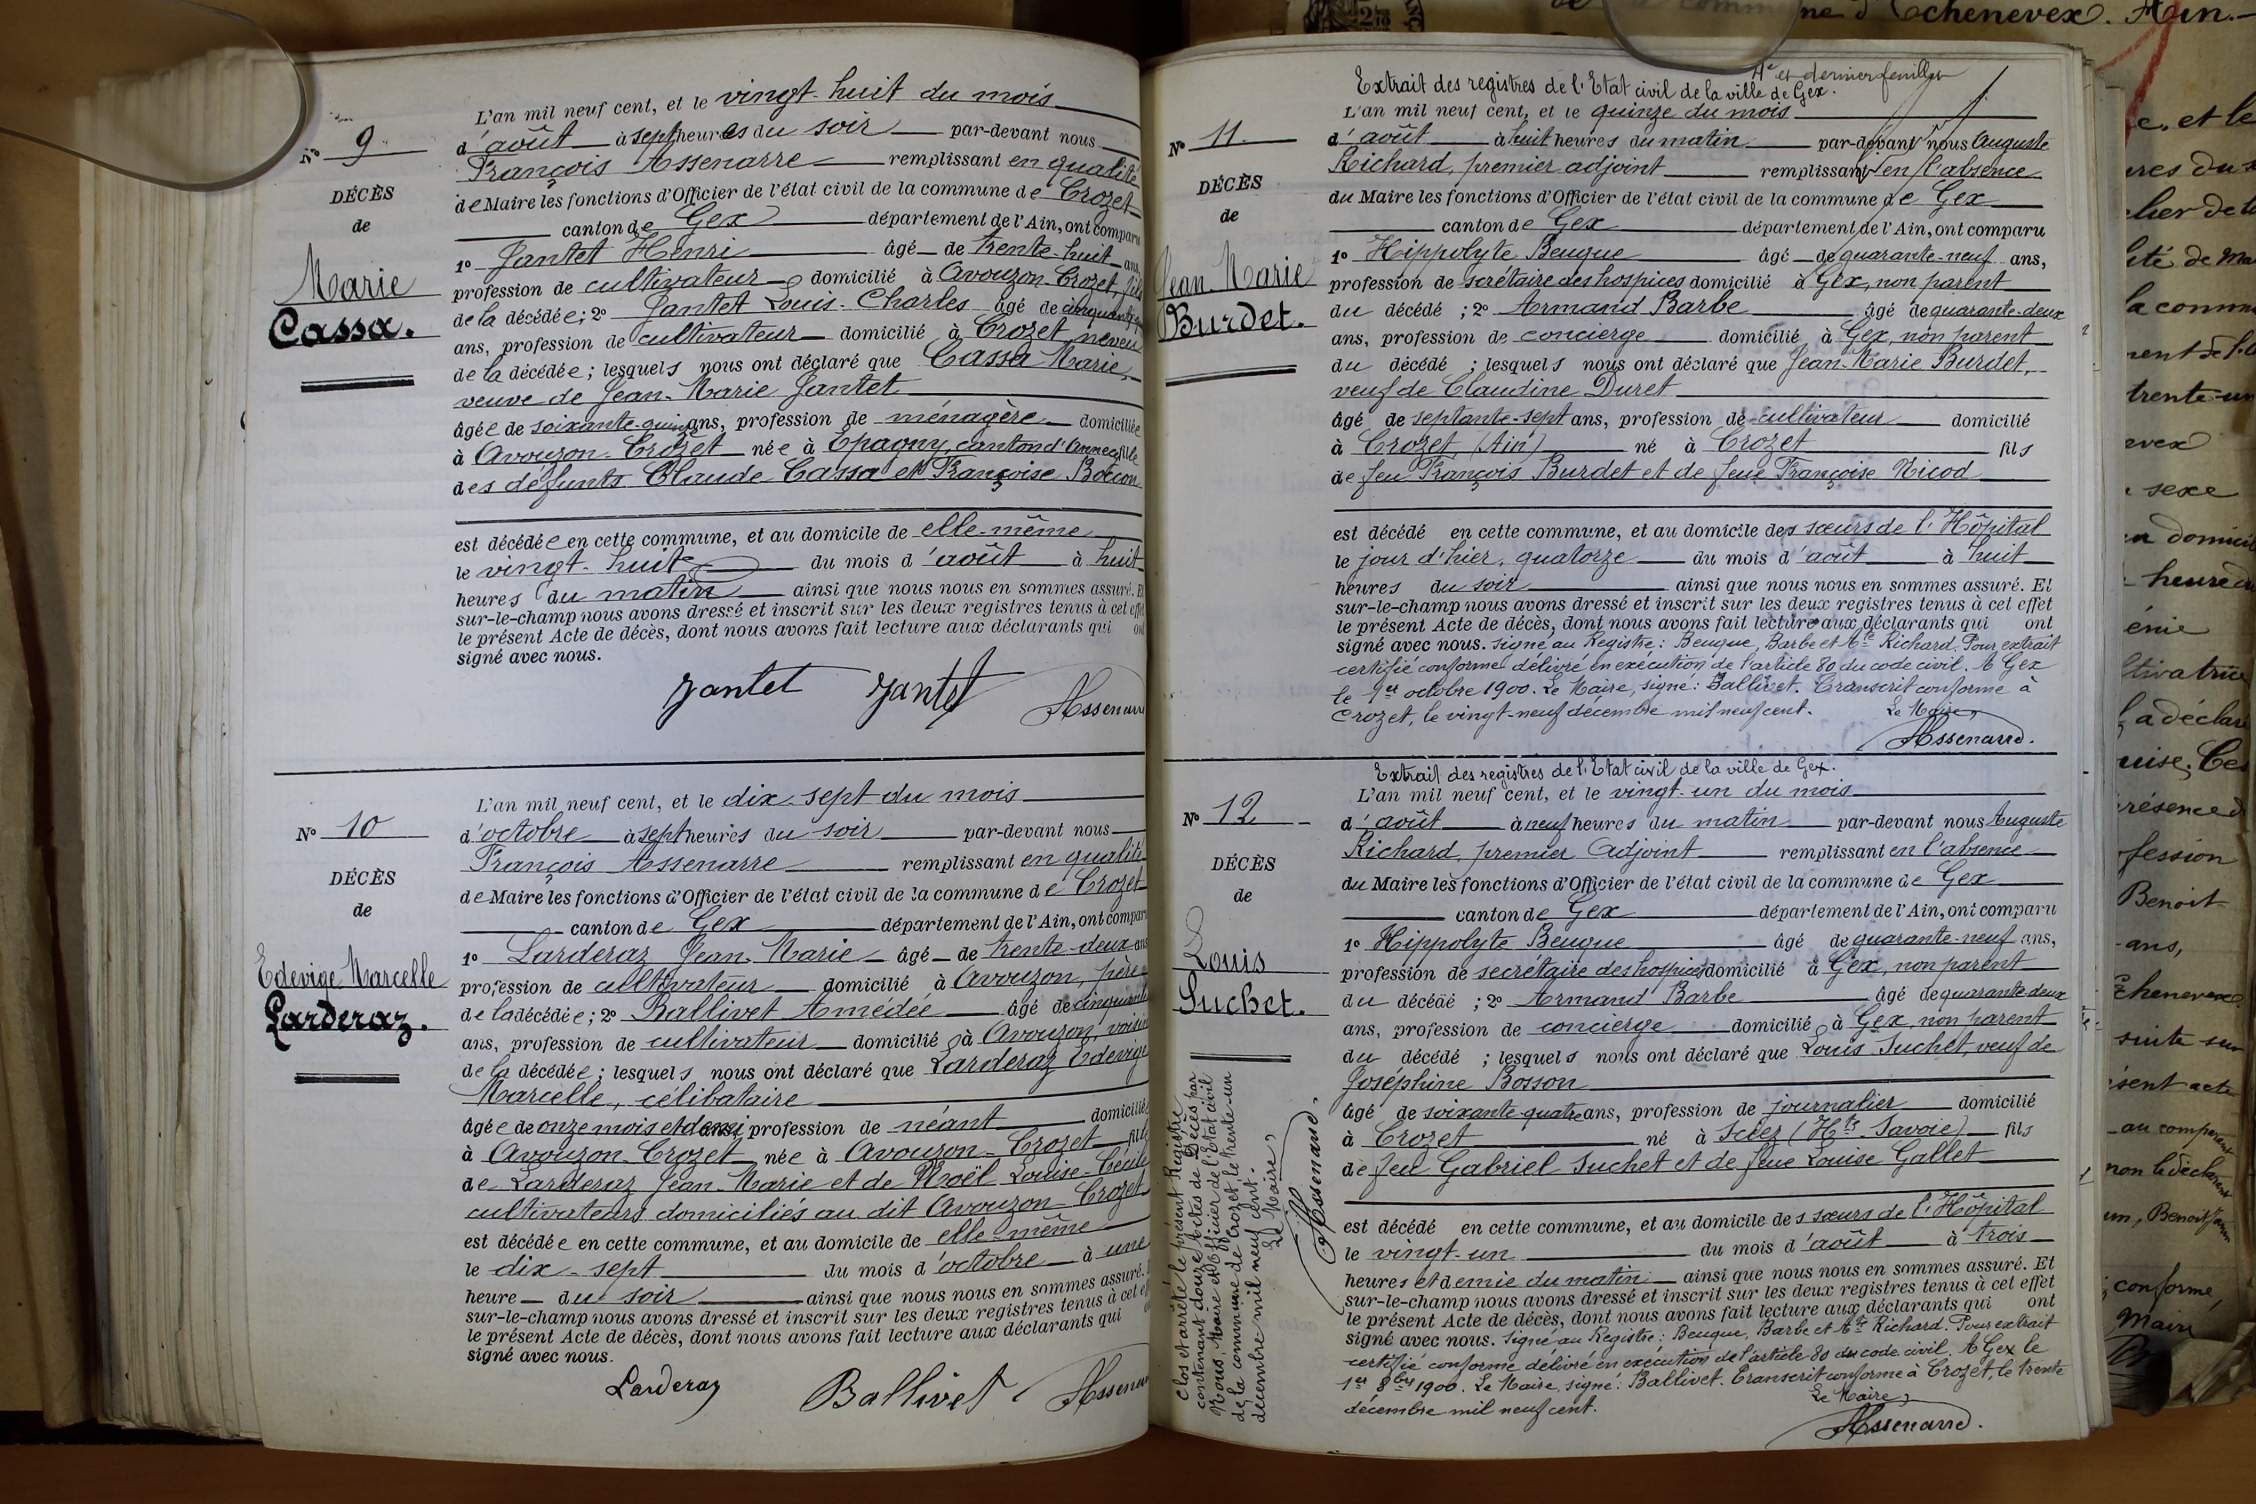 N° 9
DÉCÈS
de
Marie
Cassa.
L'an mil neuf cent, et le vingt-huit du mois
d'août à sept heures du soir par-devant nous
François Assenarre remplissant en qualité
de Maire les fonctions d'Officier de l'état civil de la commune de Crozet
canton de Gex département de l'Ain, ont comparu
1° Jantet Henri âgé de trente-huit ans,
profession de cultivateur domicilié à Avouzon-Crozet, fils
de la décédée; 2° Jantet Louis-Charles âgé de
ans, profession de cultivateur domicilié à Crozet neveu
de la décédée; lesquels nous ont déclaré que Cassa Marie,
veuve de Jean-Marie Jantet
âgée de soixante-quinze ans, profession de ménagère domiciliée
à Avouzon-Crozet née à Epagny, canton d'Annecy fille
des défunts Claude Cassa et Françoise Bocon
est décédée en cette commune, et au domicile de elle-même
le vingt-huit du mois d'août à huit
heures du matin ainsi que nous nous en sommes assuré. Et
sur-le-champ nous avons dressé et inscrit sur les deux registres tenus à cet effet
le présent Acte de décès, dont nous avons fait lecture aux déclarants qui ont
signé avec nous.
Jantet Jantet Assenarre
N° 10
DÉCÈS
de
Edevige Marcelle
Larderaz.
L'an mil neuf cent, et le dix-sept du mois
d'octobre à sept heures du soir par-devant nous
François Assenarre remplissant en qualité
de Maire les fonctions d'Officier de l'état civil de la commune de Crozet
canton de Gex département de l'Ain, ont comparu
1° Larderaz Jean-Marie âgé de trente-deux ans
profession de cultivateur domicilié à Avouzon, père
de la décédée; 2° Ballivet Amédée âgé de cinquante
ans, profession de cultivateur domicilié à Avouzon, voisin
de la décédée; lesquels nous ont déclaré que Larderaz Edevige
Marcelle, célibataire
âgée de onze mois et demi profession de néant domiciliée
à Avouzon-Crozet née à Avouzon-Crozet fille
de Larderaz Jean-Marie et de Noël Louise-Cécile
cultivateurs domiciliés au dit Avouzon-Crozet
est décédée en cette commune, et au domicile de elle-même
le dix-sept du mois d'octobre à une
heure du soir ainsi que nous nous en sommes assuré.
sur-le-champ nous avons dressé et inscrit sur les deux registres tenus à cet
le présent Acte de décès, dont nous avons fait lecture aux déclarants qui
signé avec nous.
Larderaz Ballivet Assenarre
4e et dernier feuillet
Extrait des registres de l'Etat civil de la ville de Gex.
N° 11
DÉCÈS
de
Jean-Marie
Burdet.
L'an mil neuf cent, et le quinze du mois
d'août à huit heures du matin par-devant nous Auguste
Richard, premier adjoint remplissant en l'absence
du Maire les fonctions d'Officier de l'état civil de la commune de Gex
canton de Gex département de l'Ain, ont comparu
1° Hippolyte Beugue âgé de quarante-neuf ans,
profession de secrétaire des hospices domicilié à Gex, non parent
du décédé ; 2° Armand Barbe âgé de quarante-deux
ans, profession de concierge domicilié à Gex, non parent
du décédé ; lesquels nous ont déclaré que Jean-Marie Burdet,
veuf de Claudine Duret
âgé de septante-sept ans, profession de cultivateur domicilié
à Crozet, (Ain) né à Crozet fils
de feu François Burdet et de feue Françoise Nicod
est décédé en cette commune, et au domicile des sœurs de l'Hôpital
le jour d'hier, quatorze du mois d'août à huit
heures du soir ainsi que nous nous en sommes assuré. Et
sur-le-champ nous avons dressé et inscrit sur les deux registres tenus à cet effet
le présent Acte de décès, dont nous avons fait lecture aux déclarants qui ont
signé avec nous. Signé au Registre: Beugue, Barbe et Ate Richard. Pour extrait
certifié conforme délivré en exécution de l'article 80 du code civil. A Gex
le 1er octobre 1900. Le Maire, signé: Ballivet. Transcrit conforme à
Crozet, le vingt-neuf décembre mil neuf cent. Le Maire,
Assenarre.
Extrait des registres de l'Etat civil de la ville de Gex.
N° 12
DÉCÈS
de
Louis
Suchet.
L'an mil neuf cent, et le vingt-un du mois
d'août à neuf heures du matin par-devant nous Auguste
Richard, premier Adjoint remplissant en l'absence
du Maire les fonctions d'Officier de l'état civil de la commune de Gex
canton de Gex département de l'Ain, ont comparu
1° Hippolyte Beugue âgé de quarante-neuf ans,
profession de secrétaire des hospices domicilié à Gex, non parent
du décédé ; 2° Armand Barbe âgé de quarante-deux
ans, profession de concierge domicilié à Gex, non parent
du décédé ; lesquels nous ont déclaré que Louis Suchet, veuf de
Joséphine Bosson
âgé de soixante-quatre ans, profession de journalier domicilié
à Crozet né à Sciez (Hte Savoie) fils
de feu Gabriel Suchet et de feue Louise Gallet
est décédé en cette commune, et au domicile des sœurs de l'Hôpital
le vingt-un du mois d'août à trois
heures et demie du matin ainsi que nous nous en sommes assuré. Et
sur-le-champ nous avons dressé et inscrit sur les deux registres tenus à cet effet
le présent Acte de décès, dont nous avons fait lecture aux déclarants qui ont
signé avec nous. Signé au Registre: Beugue, Barbe et Ate Richard. Pour extrait
certifié conforme délivré en exécution de l'article 80 du code civil. A Gex le
1er 8bre 1900. Le Maire, signé: Ballivet. Transcrit conforme à Crozet, le trente
décembre mil neuf cent. Le Maire,
Assenarre.
Clos et arrêté le présent Registre
contenant douze Actes de Décès par
Nous, Maire et Officier de l'Etat civil
de la commune de Crozet, le trente-un
décembre mil neuf cent.
Le Maire,
Assenarre.
Echenevex. Ain.
c. et le
cher de la
lité de Ma
la comm
trente-un
sexe
domicil
heure du
énie
ltivatrice
la déclar
résence d
fession
Benoit
ans,
Echenevex
suite sur
ésent acte
au comparant
non le déclarant
un, Benoit
conforme,
Maire